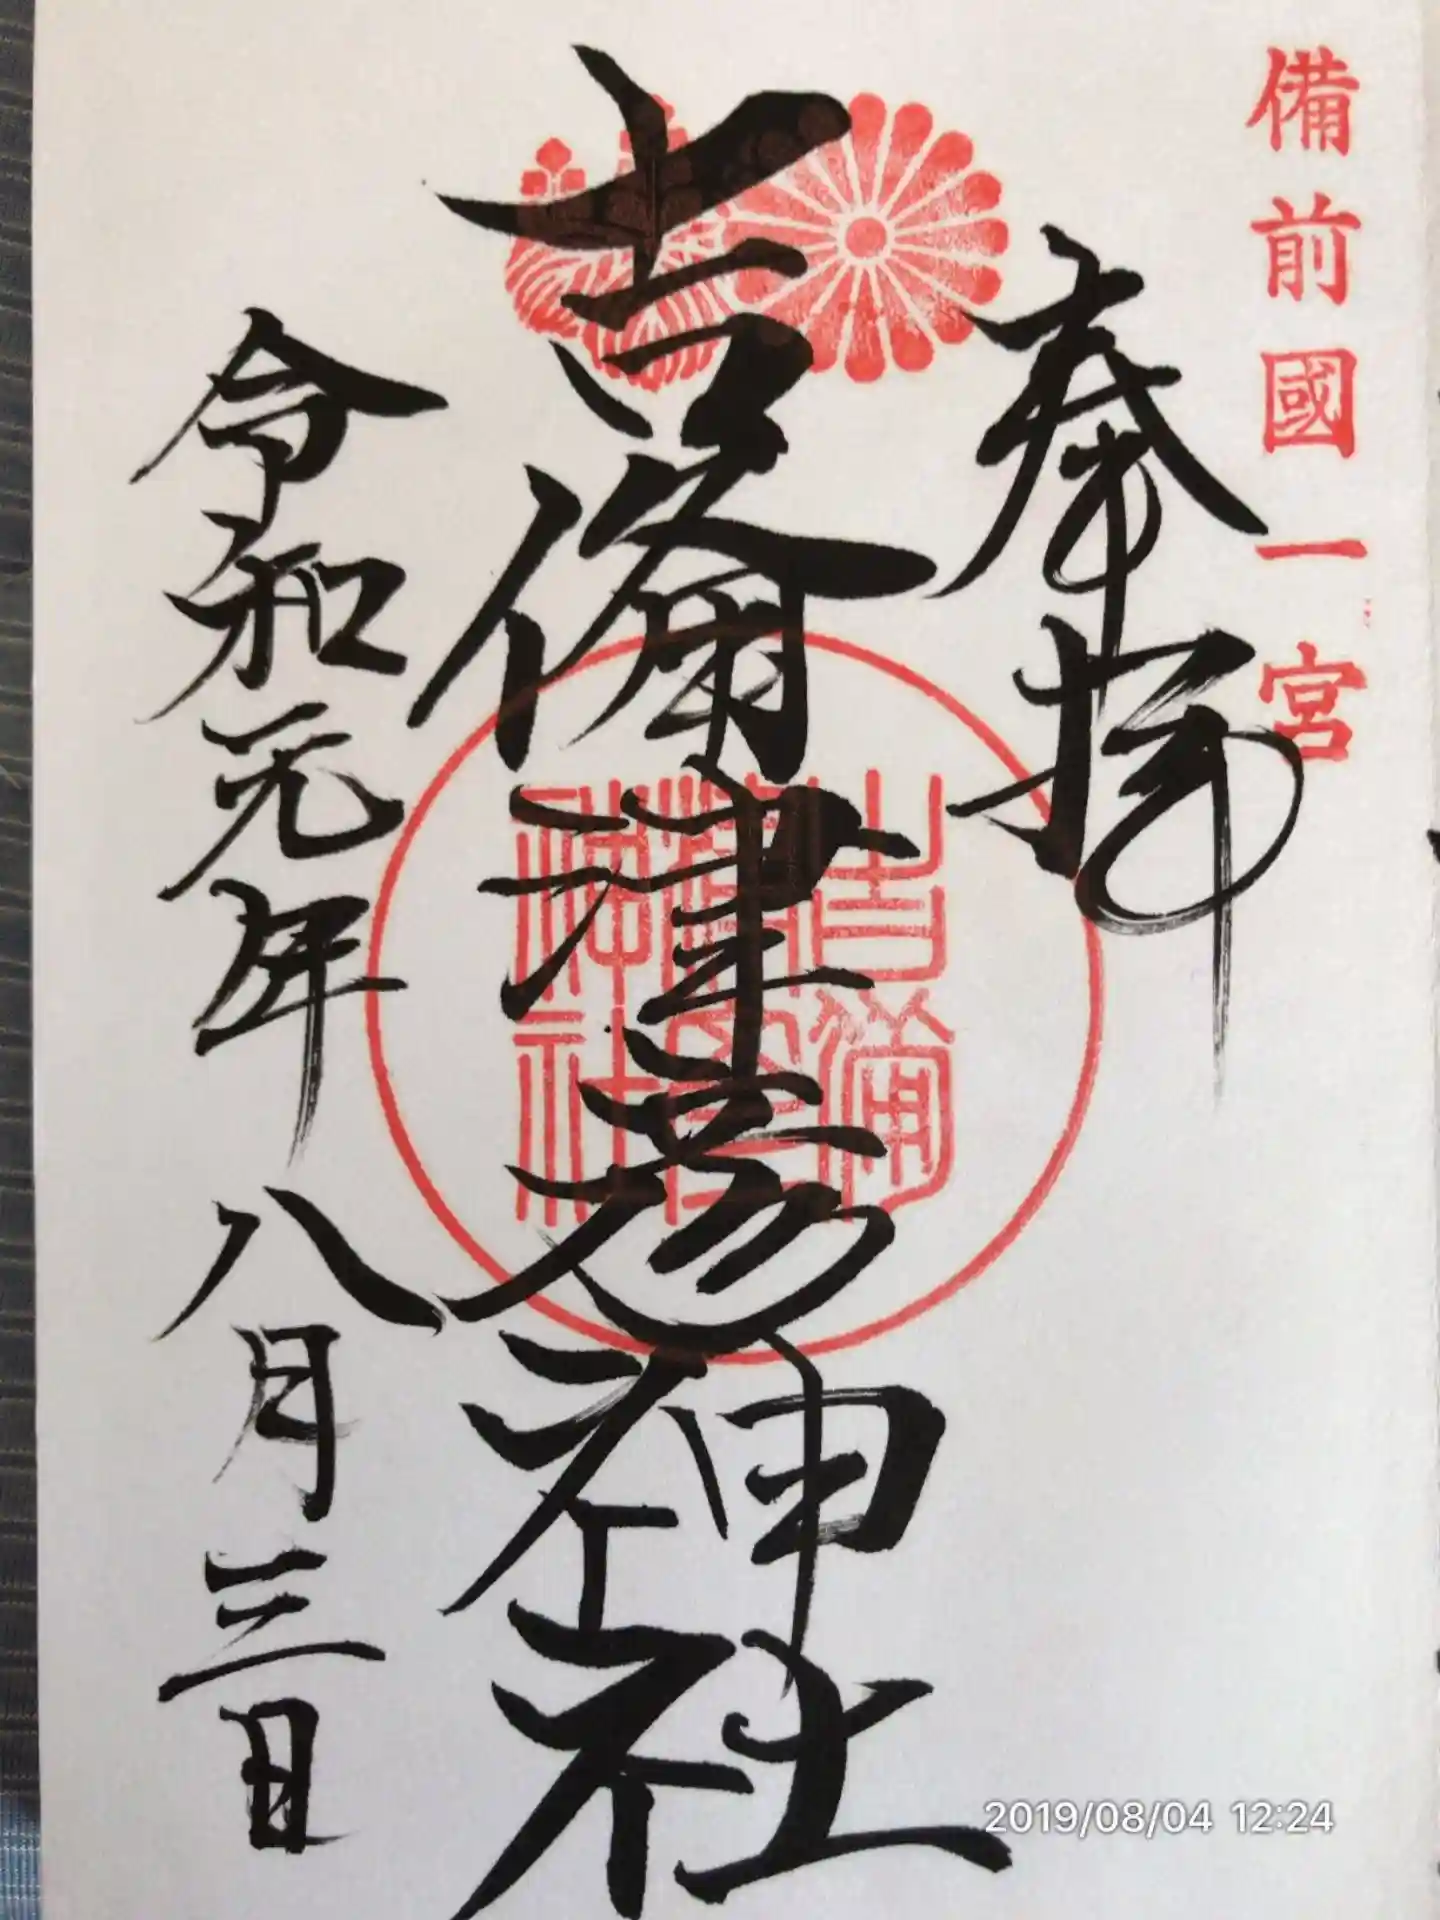 備前國一宮
奉拝
吉備津彦神社
吉備津宮神社
令和元年八月三日
2019/08/04 12:24